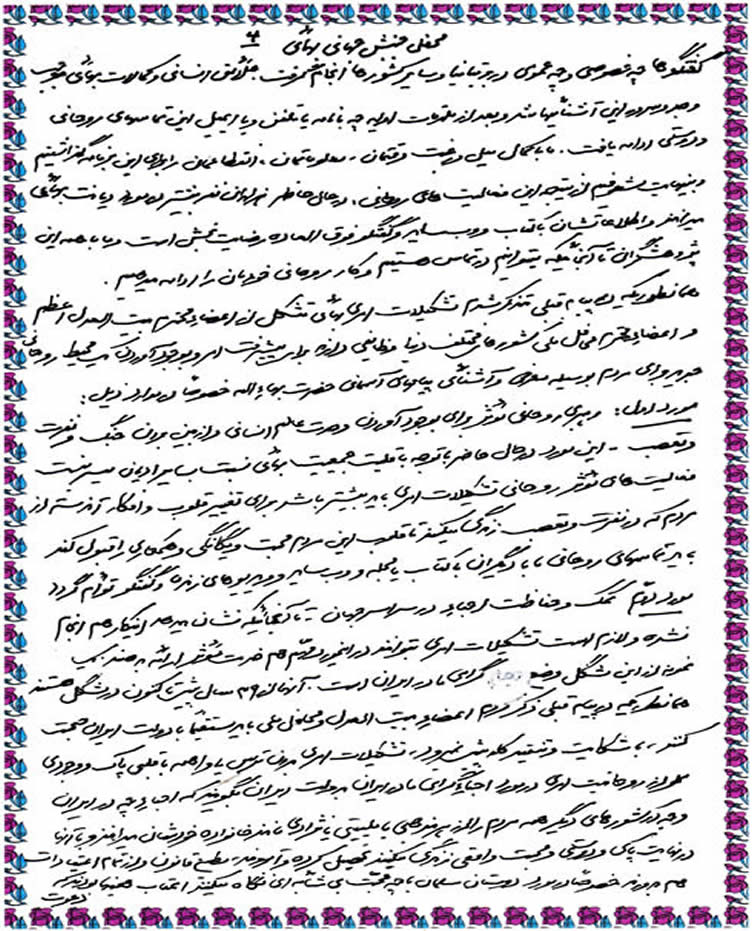 محفل جنبش جهانی بهائی ۴
گفتگوها چه خصوصی و چه عمومی در بریتانیا و سایر کشورها انجام میگرفت علائق انسانی و کمالات بهائی موجب
وجد و سرور این آشنائیها شد و بعد از ملاقات اولیه چه با نامه یا تلفن و یا ایمیل این تماسهای روحانی
و دوستی ادامه یافت. ما با کمال میل و رغبت وقتمان، معلوماتمان، را برای این برنامه گذاشتیم
و بینهایت مشعوفیم از نتیجه این فعالیت های روحانی، در حال حاضر هزاران نفر بیشتر در مورد دیانت بهائی
میدانند و اطلاعاتشان با کتاب و وب سایر و گفتگو فوق العاده رضایت بخش است و ما با همه این
پژوهشگران تا آنجائیکه بتوانیم در تماس هستیم و کار روحانی خودمان را ادامه میدهیم.
همانطوریکه در پیام قبلی تذکر شد تشکیلات امری بهائی متشکل از اعضاء محترم بیت العدل اعظم
و اعضاء محترم محافل ملی کشورهای مختلف دنیا وظایفی دارند برای پیشرفت امر و بوجود آوردن یک محیط روحانی
جدید برای مردم بوسیله معرفی و آشنائی پیامهای آسمانی حضرت بهاءالله خصوصاً در موارد ذیل:
مورد اول: رهبری روحانی مؤثر برای بوجود آوردن وحدت عالم انسانی و از بین بردن جنگ و نفرت
و تعصب - این مورد در حال حاضر با توجه با قلیت جمعیت بهائی نسبت به سایر ادیان میسر نیست
فعالیت های مؤثر روحانی تشکیلات امری باید بیشتر باشد برای تغییر قلوب و افکار آندسته از
مردم که در نفرت و تعصب زندگی میکنند تا قلوب این مردم محبت و یگانگی و همکاری را قبول کند
باید تماسهای روحانی ما با دیگران با کتاب یا مجله و وب سایر و ویدیوهای زنده و گفتگو توأم گردد
مورد دوم کمک و حفاظت احباء در سراسر جهان - تا آنجائیکه نشان میدهد اینکار هم انجام
نشده و لازم است تشکیلات امری بتوانند در این مورد دوم هم خدمت مؤثر ارائه بدهند یک
نمونه از این مشکل وضع گرامی ما در ایران است. آنها از سال پیش تا کنون در مشکل هستند
همانطوریکه در پیام قبلی ذکر کردم اعضاء بیت العدل و محافل ملی باید مستقیماً با دولت ایران صحبت
کنند، با شکایت و تنقید کار پیش نمیرود، تشکیلات امری بدون ترس یا واهمه با قلبی پاک و وجودی
مملو از روحانیت امری در مورد احباء گرامی ما در ایران به دولت ایران بگویند که احباء چه در ایران
و چه در کشورهای دیگر همه مردم را از هر مذهبی یا ملیتی یا نژادی مانند خانواده خودشان میدانند و با آنها
در نهایت پاکی و دوستی و محبت واقعی زندگی میکنند تحصیل کرده و آبرومند - مطیع قانون و از تمام اعتیادات
هم بدورند خصوصاً در مورد دوستان مسلمان با چه محبت بی شائبه ای نگاه میکنند
دعوت